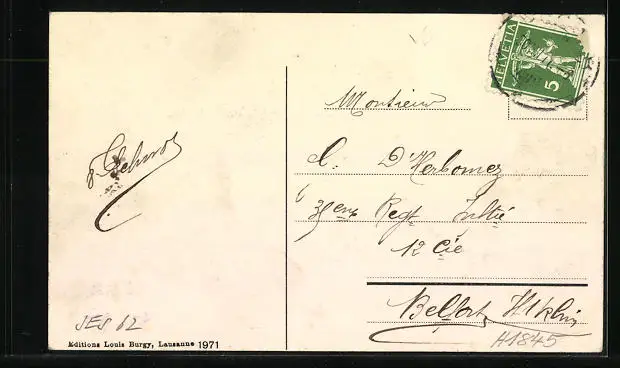 HELVETIA
5
Monsieur
D'Herbomez
35eme Regt Inftie
12 Cie
Belfort Ht Rhin
JES 62
H1845
Editions Louis Burgy, Lausanne 1971